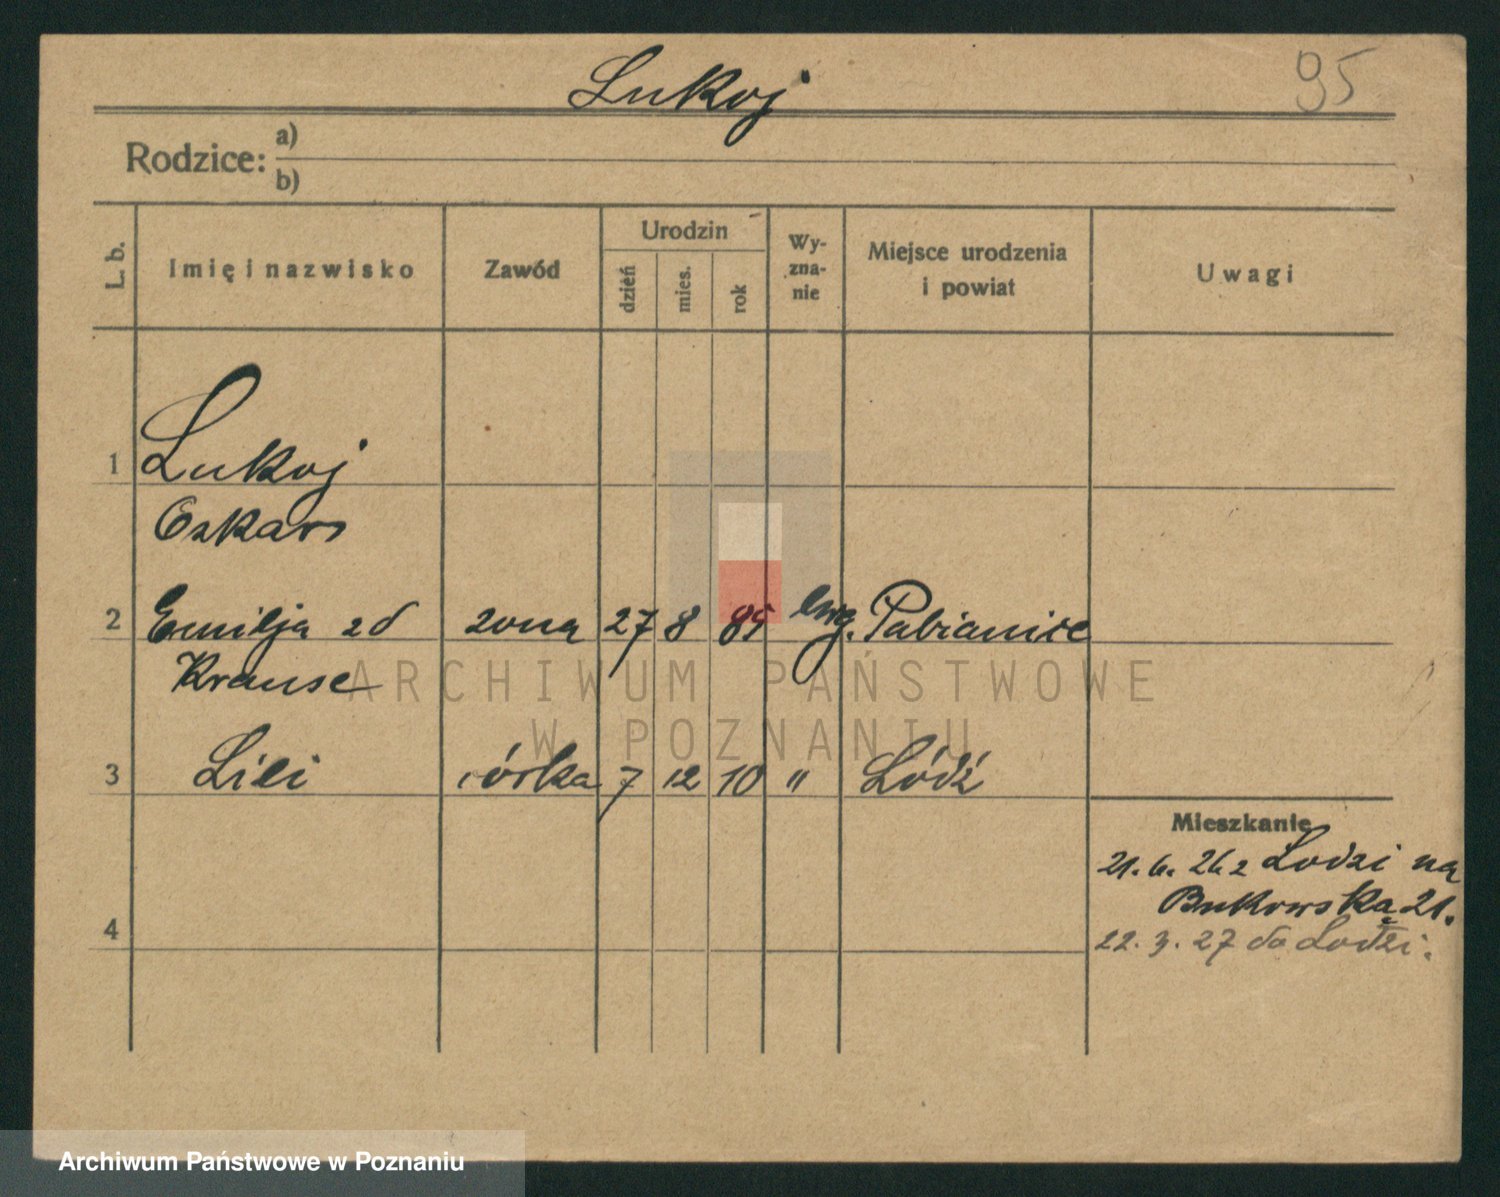 Lukoj
95
Rodzice: a)
b)
L. b.
Imię i nazwisko
Zawód
Urodzin
dzień
mies.
rok
Wy-
zna-
nie
Miejsce urodzenia
i powiat
Uwagi
1 Lukoj
Oskar
2 Emilja zd żona 27 8 85 ewg. Pabianice
Krause
3 Lili córka 7 12 10 " Łódź
4
Mieszkanie
21. 6. 26 z Łodzi na
Bukowską 21.
22. 3. 27 do Łodzi.
ARCHIWUM PAŃSTWOWE
W POZNANIU
Archiwum Państwowe w Poznaniu